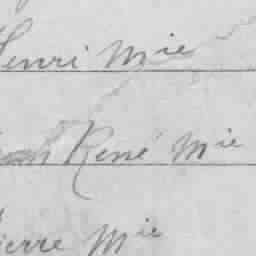 Henri Mie
René Mie
Pierre Mie